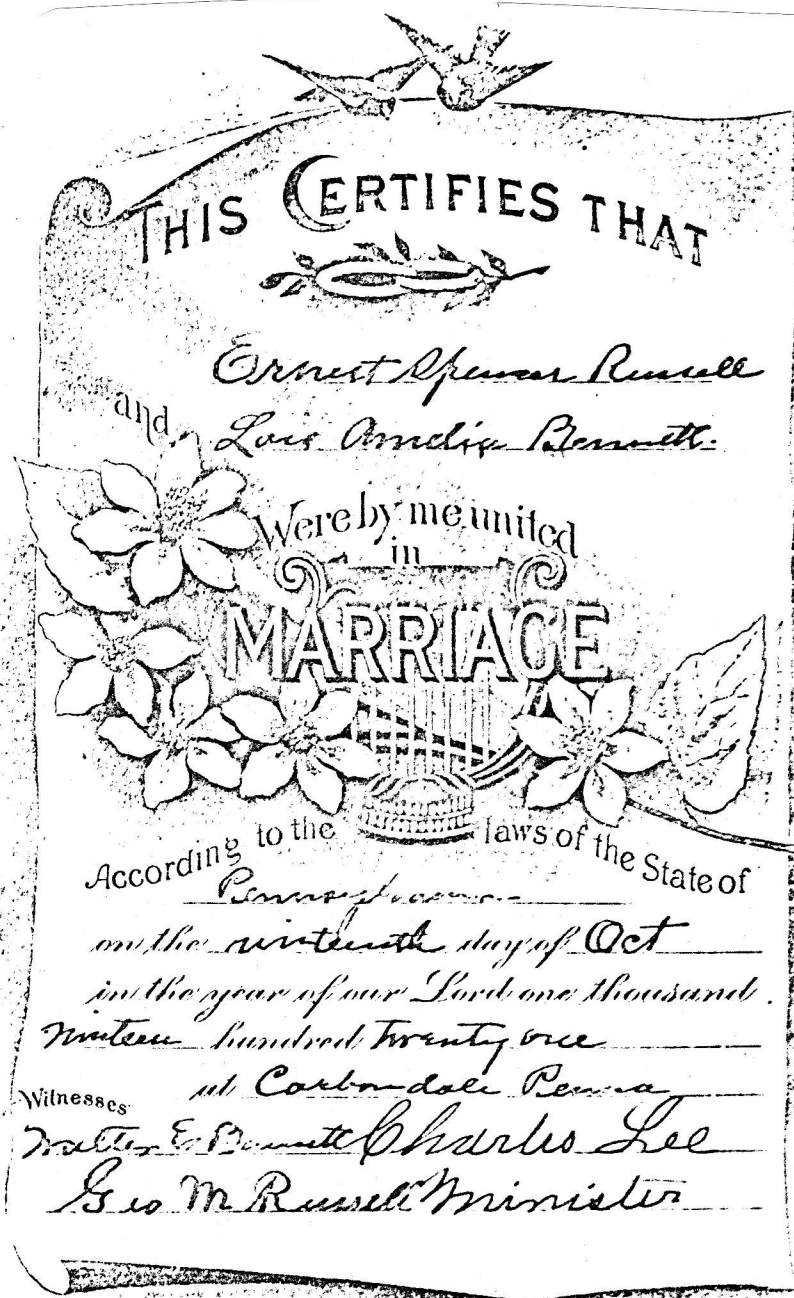 THIS CERTIFIES THAT
Ernest Spencer Russell
and Lois Amelia Bennett.
Were by me united
in
MARRIAGE
According to the laws of the State of
Pennsylvania
on the ninteenth day of Oct
in the year of our Lord one thousand
Ninteen hundred Twenty one
at Carbondale Penna
Witnesses
Walter E. Bennett Charles Lee
Geo M Russell Minister